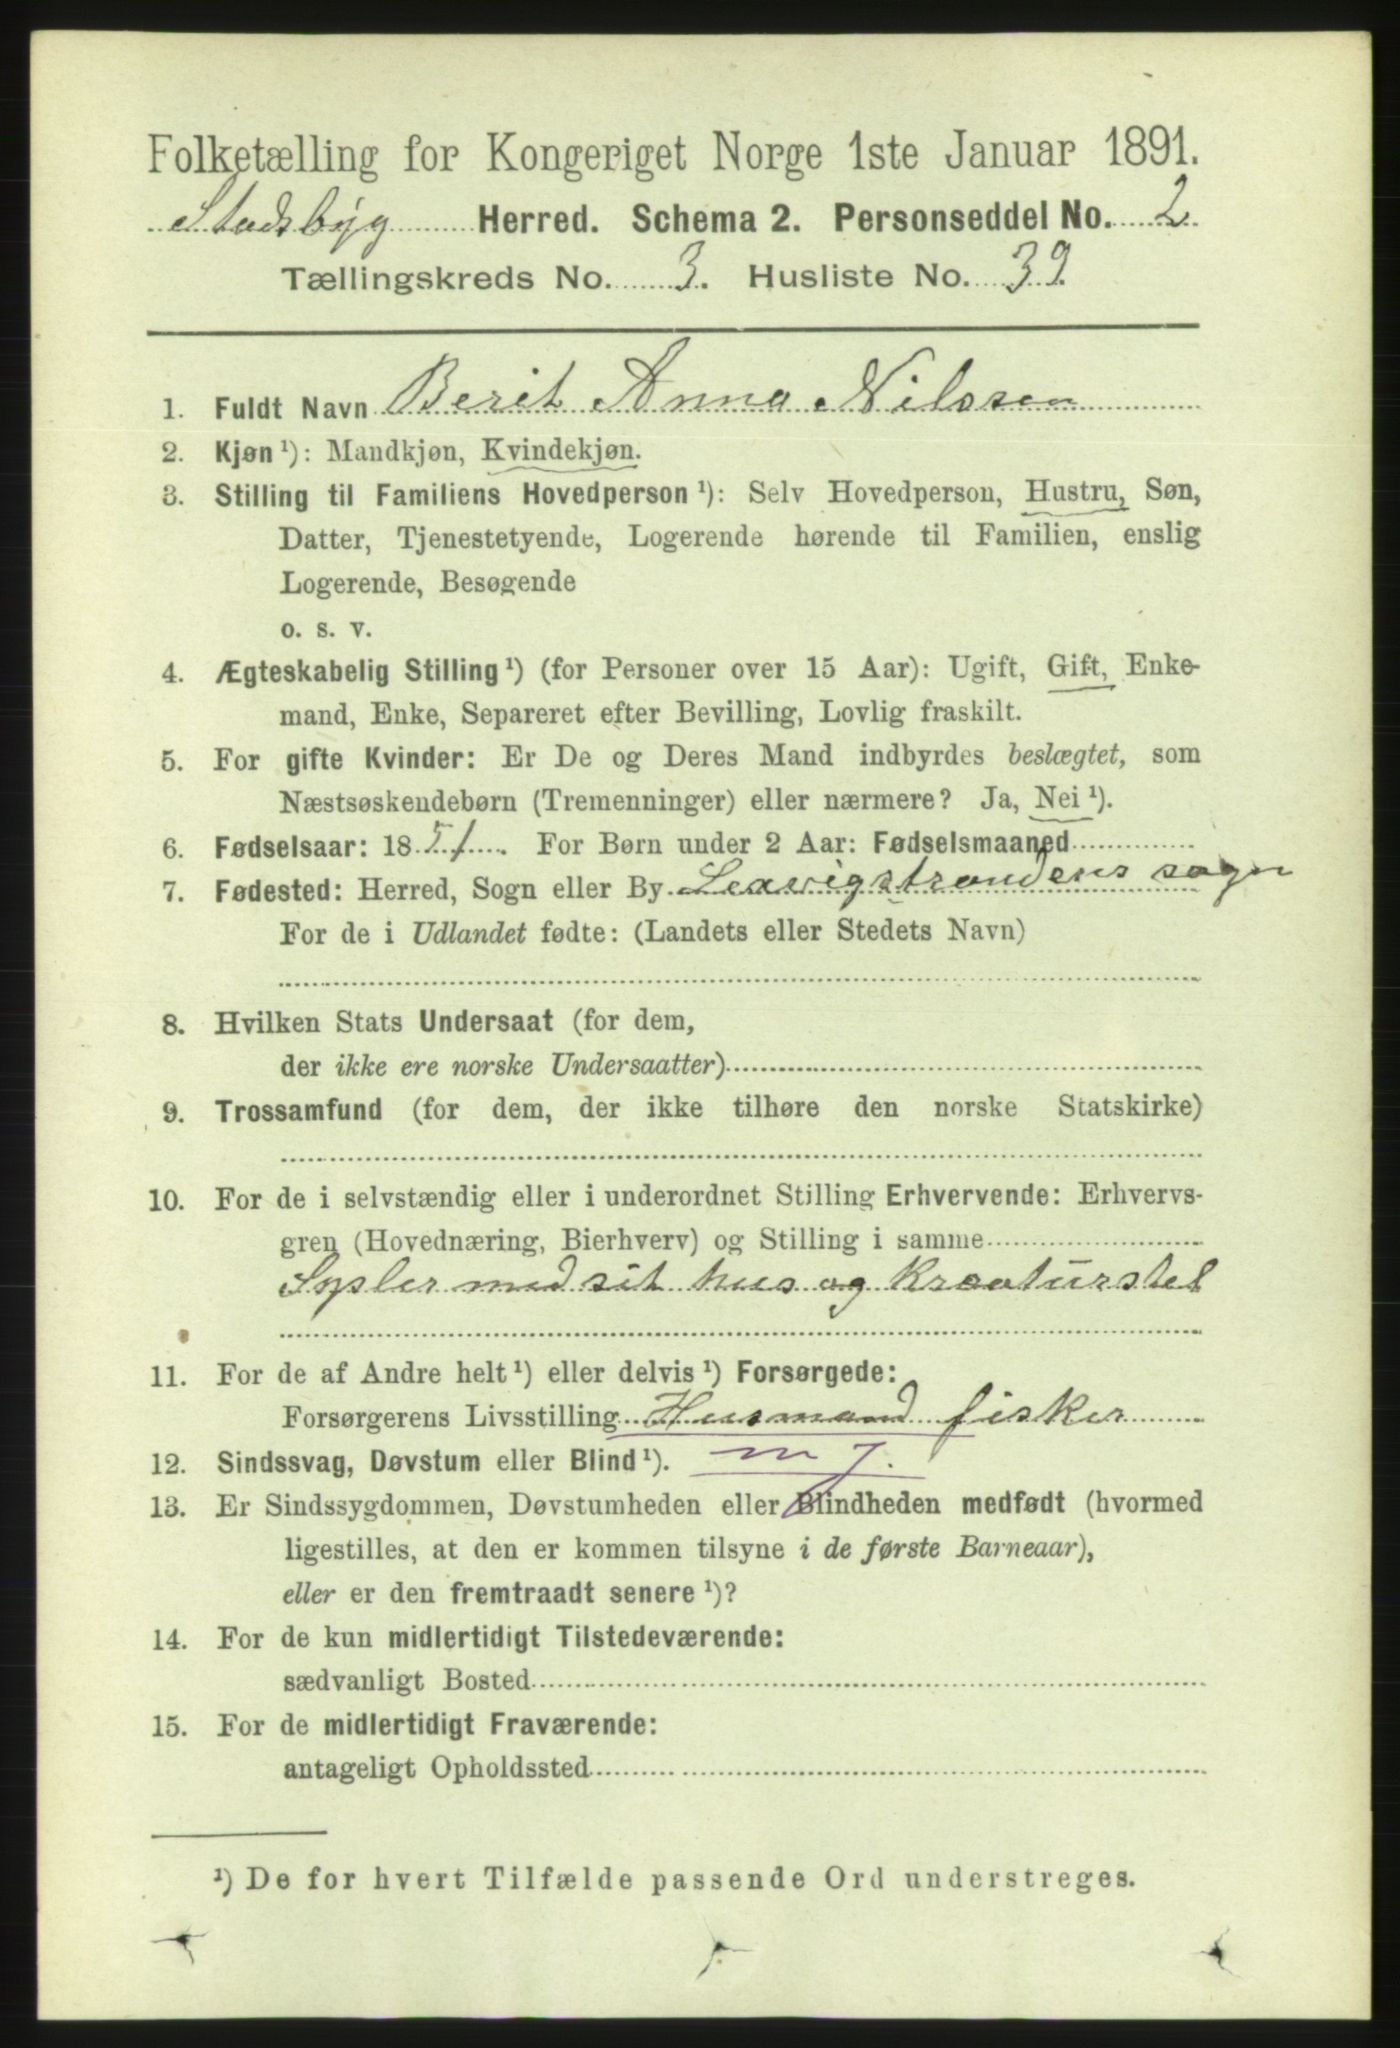 Folketælling for Kongeriget Norge 1ste Januar 1891.
Stadsbyg Herred. Schema 2. Personseddel No. 2
Tællingskreds No. 3. Husliste No. 39.
1. Fuldt Navn Berit Anna Nilssen
2. Kjøn ¹): Mandkjøn, Kvindekjøn.
3. Stilling til Familiens Hovedperson ¹): Selv Hovedperson, Hustru, Søn,
Datter, Tjenestetyende, Logerende hørende til Familien, enslig
Logerende, Besøgende
o. s. v.
4. Ægteskabelig Stilling ¹) (for Personer over 15 Aar): Ugift, Gift, Enke-
mand, Enke, Separeret efter Bevilling, Lovlig fraskilt.
5. For gifte Kvinder: Er De og Deres Mand indbyrdes beslægtet, som
Næstsøskendebørn (Tremenninger) eller nærmere? Ja, Nei ¹).
6. Fødselsaar: 1851. For Børn under 2 Aar: Fødselsmaaned
7. Fødested: Herred, Sogn eller By Lexvigstrandens sogn
For de i Udlandet fødte: (Landets eller Stedets Navn)
8. Hvilken Stats Undersaat (for dem,
der ikke ere norske Undersaatter)
9. Trossamfund (for dem, der ikke tilhøre den norske Statskirke)
10. For de i selvstændig eller i underordnet Stilling Erhvervende: Erhvervs-
gren (Hovednæring, Bierhverv) og Stilling i samme
Sysler med sit hus og Kreaturstel
11. For de af Andre helt ¹) eller delvis ¹) Forsørgede:
Forsørgerens Livsstilling Husmand fisker
12. Sindssvag, Døvstum eller Blind ¹). m j.
13. Er Sindssygdommen, Døvstumheden eller Blindheden medfødt (hvormed
ligestilles, at den er kommen tilsyne i de første Barneaar),
eller er den fremtraadt senere ¹)?
14. For de kun midlertidigt Tilstedeværende:
sædvanligt Bosted
15. For de midlertidigt Fraværende:
antageligt Opholdssted
¹) De for hvert Tilfælde passende Ord understreges.